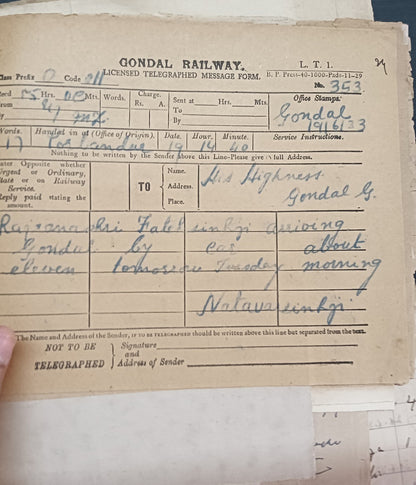 GONDAL RAILWAY.
L. T. 1.
LICENSED TELEGRAPHED MESSAGE FORM.
B. P. Press-40-1000-Pads-11-29
Class Prefix O Code
No. 353
Recd Hrs. Mts. Words. Charge. Sent at Hrs. Mts. Office Stamps:
From Rs. A. To Gondal
By By 19/6/33
Words. Handed in at (Office of Origin). Date. Hour. Minute. Service Instructions.
17 Porbandar 19 19 40
Nothing to be written by the Sender above this Line-Please give in full Address.
Enter Opposite whether
Urgent or Ordinary,
State or on Railway
Service.
Reply paid stating the
amount.
TO
Name. His Highness
Address.
Gondal G.
Place.
Fatehsinhji arriving
Gondal by car about
eleven tomorrow Tuesday morning
Natavarsinhji
The Name and Address of the Sender, IF TO BE TELEGRAPHED should be written above this line but separated from the text.
NOT TO BE TELEGRAPHED
Signature
and
Address of Sender